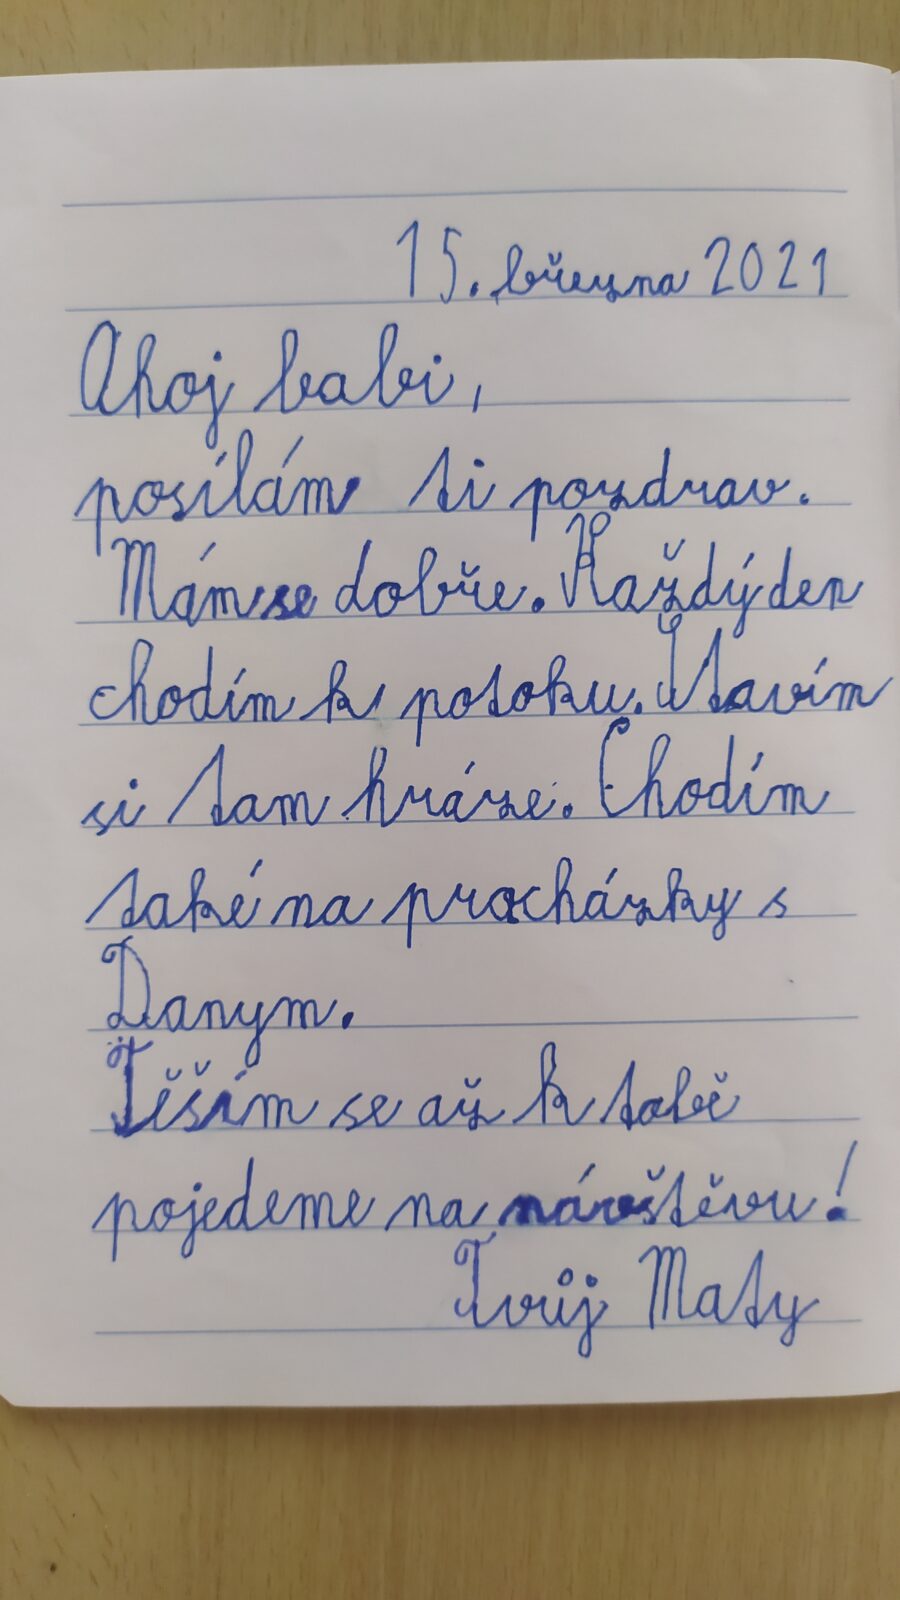 15. března 2021
Ahoj babi,
posílám ti pozdrav.
Mám se dobře. Každý den
chodím k potoku. Stavím
si tam hráze. Chodím
také na procházky s
Danym.
Těším se až k tobě
pojedeme na návštěvu!
Tvůj Maty